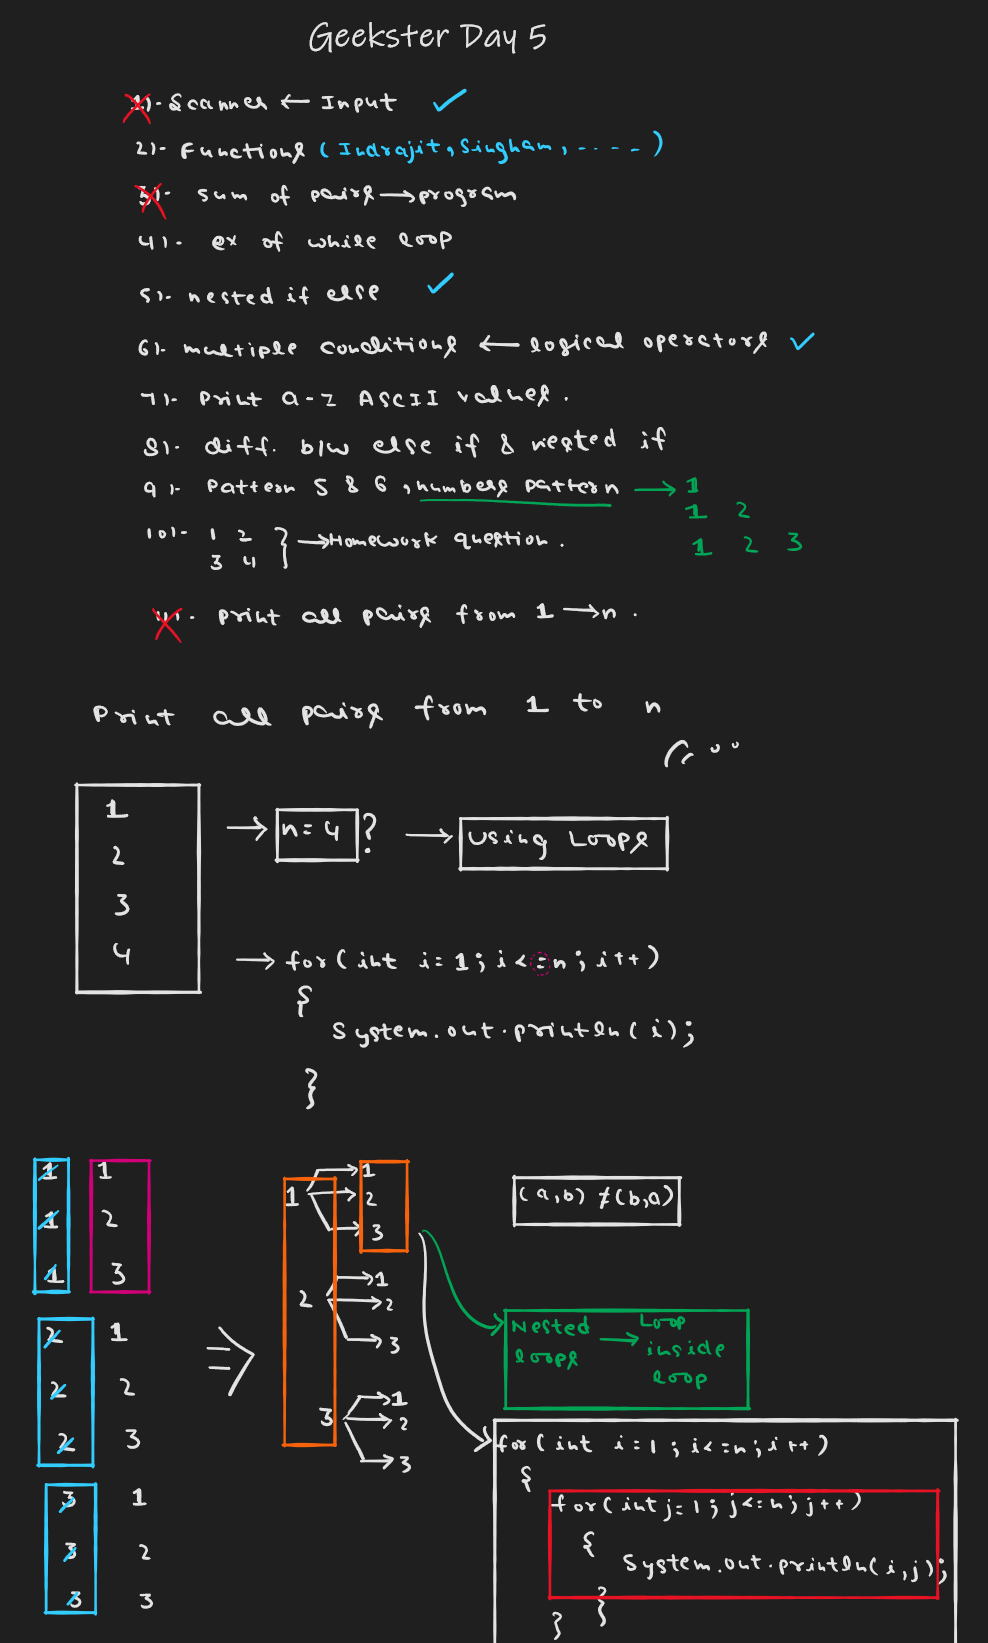 Geekster Day 5
1)- Scanner ← Input ✓
2)- Functions (Indrajit, Singham, -----)
3)- sum of pairs → program
4)- ex of while loop
5)- nested if else ✓
6)- multiple conditions ← logical operators ✓
7)- Print a-z ASCII values.
8)- diff. b/w else if & nested if
9)- Pattern 5 & 6, numbers pattern → 1
1 2
1 2 3
10)- 1 2 } → Homework question.
3 4
11)- Print all pairs from 1 → n.
Print all pairs from 1 to n
1
2
3
4
→ n = 4 ? → Using Loops
→ for( int i = 1; i <= n; i++)
{
System.out.println( i );
}
1 1
1 2
1 3
2 1
2 2
2 3
3 1
3 2
3 3
⇒
1 → 1
→ 2
→ 3
2 → 1
→ 2
→ 3
3 → 1
→ 2
→ 3
(a,b) ≠ (b,a)
Nested loops → Loop inside loop
for( int i = 1; i <= n; i++)
{
for( int j = 1; j <= n; j++)
{
System.out.println( i, j );
}
}